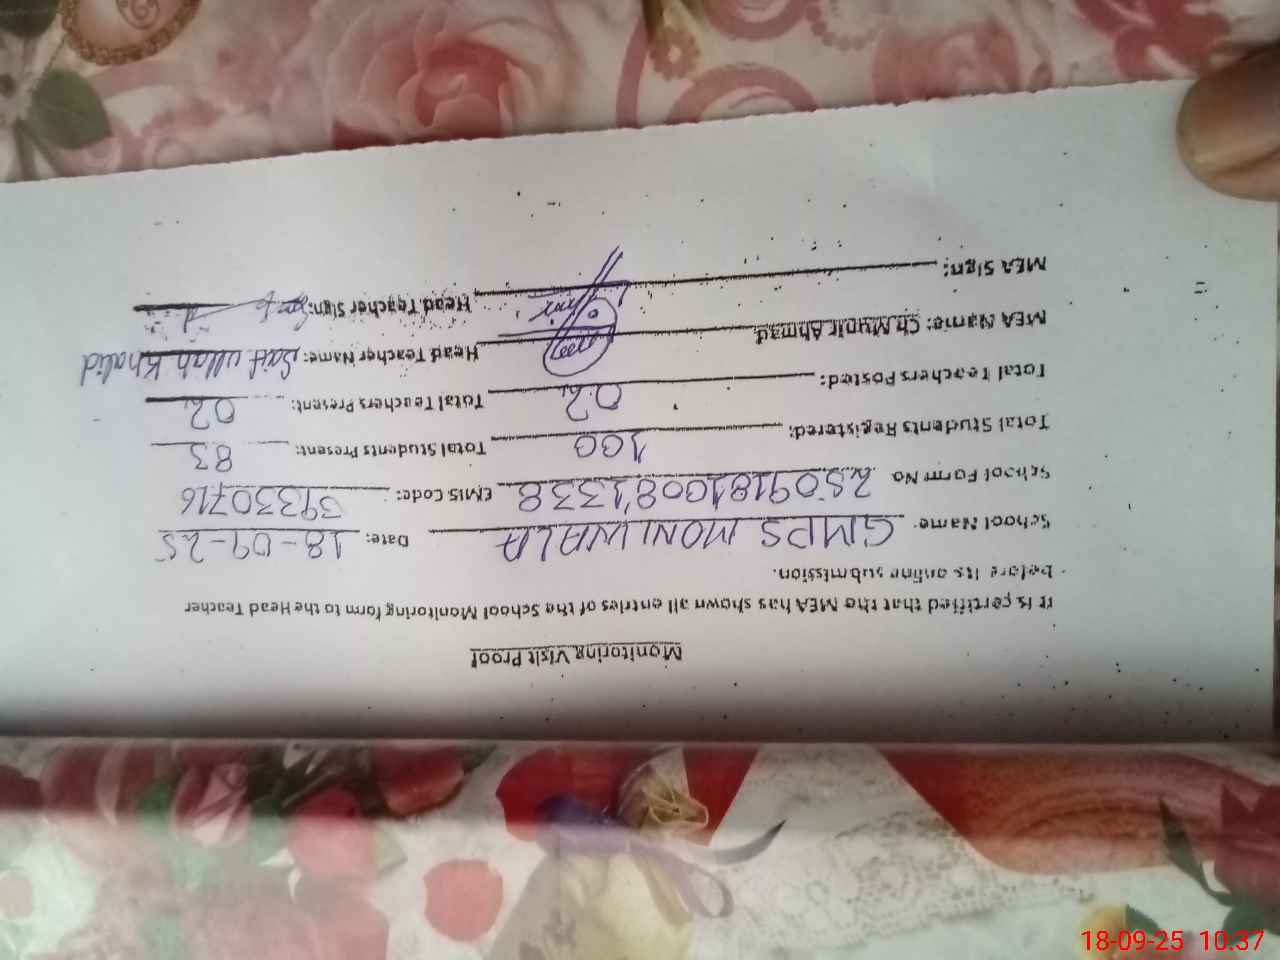 Monitoring Visit Proof
It is certified that the MEA has shown all entries of the School Monitoring form to the Head Teacher
before its online submission.
School Name: GMPS MONIWALA Date: 18-09-25
School Form No. 25091810081338 EMIS Code: 39330716
Total Students Registered: 100 Total Students Present: 83
Total Teachers Posted: 02 Total Teachers Present: 02
MEA Name: Ch. Munir Ahmad Head Teacher Name: Saif ullah Khalid
MEA Sign: Head Teacher Sign:
18-09-25 10:37